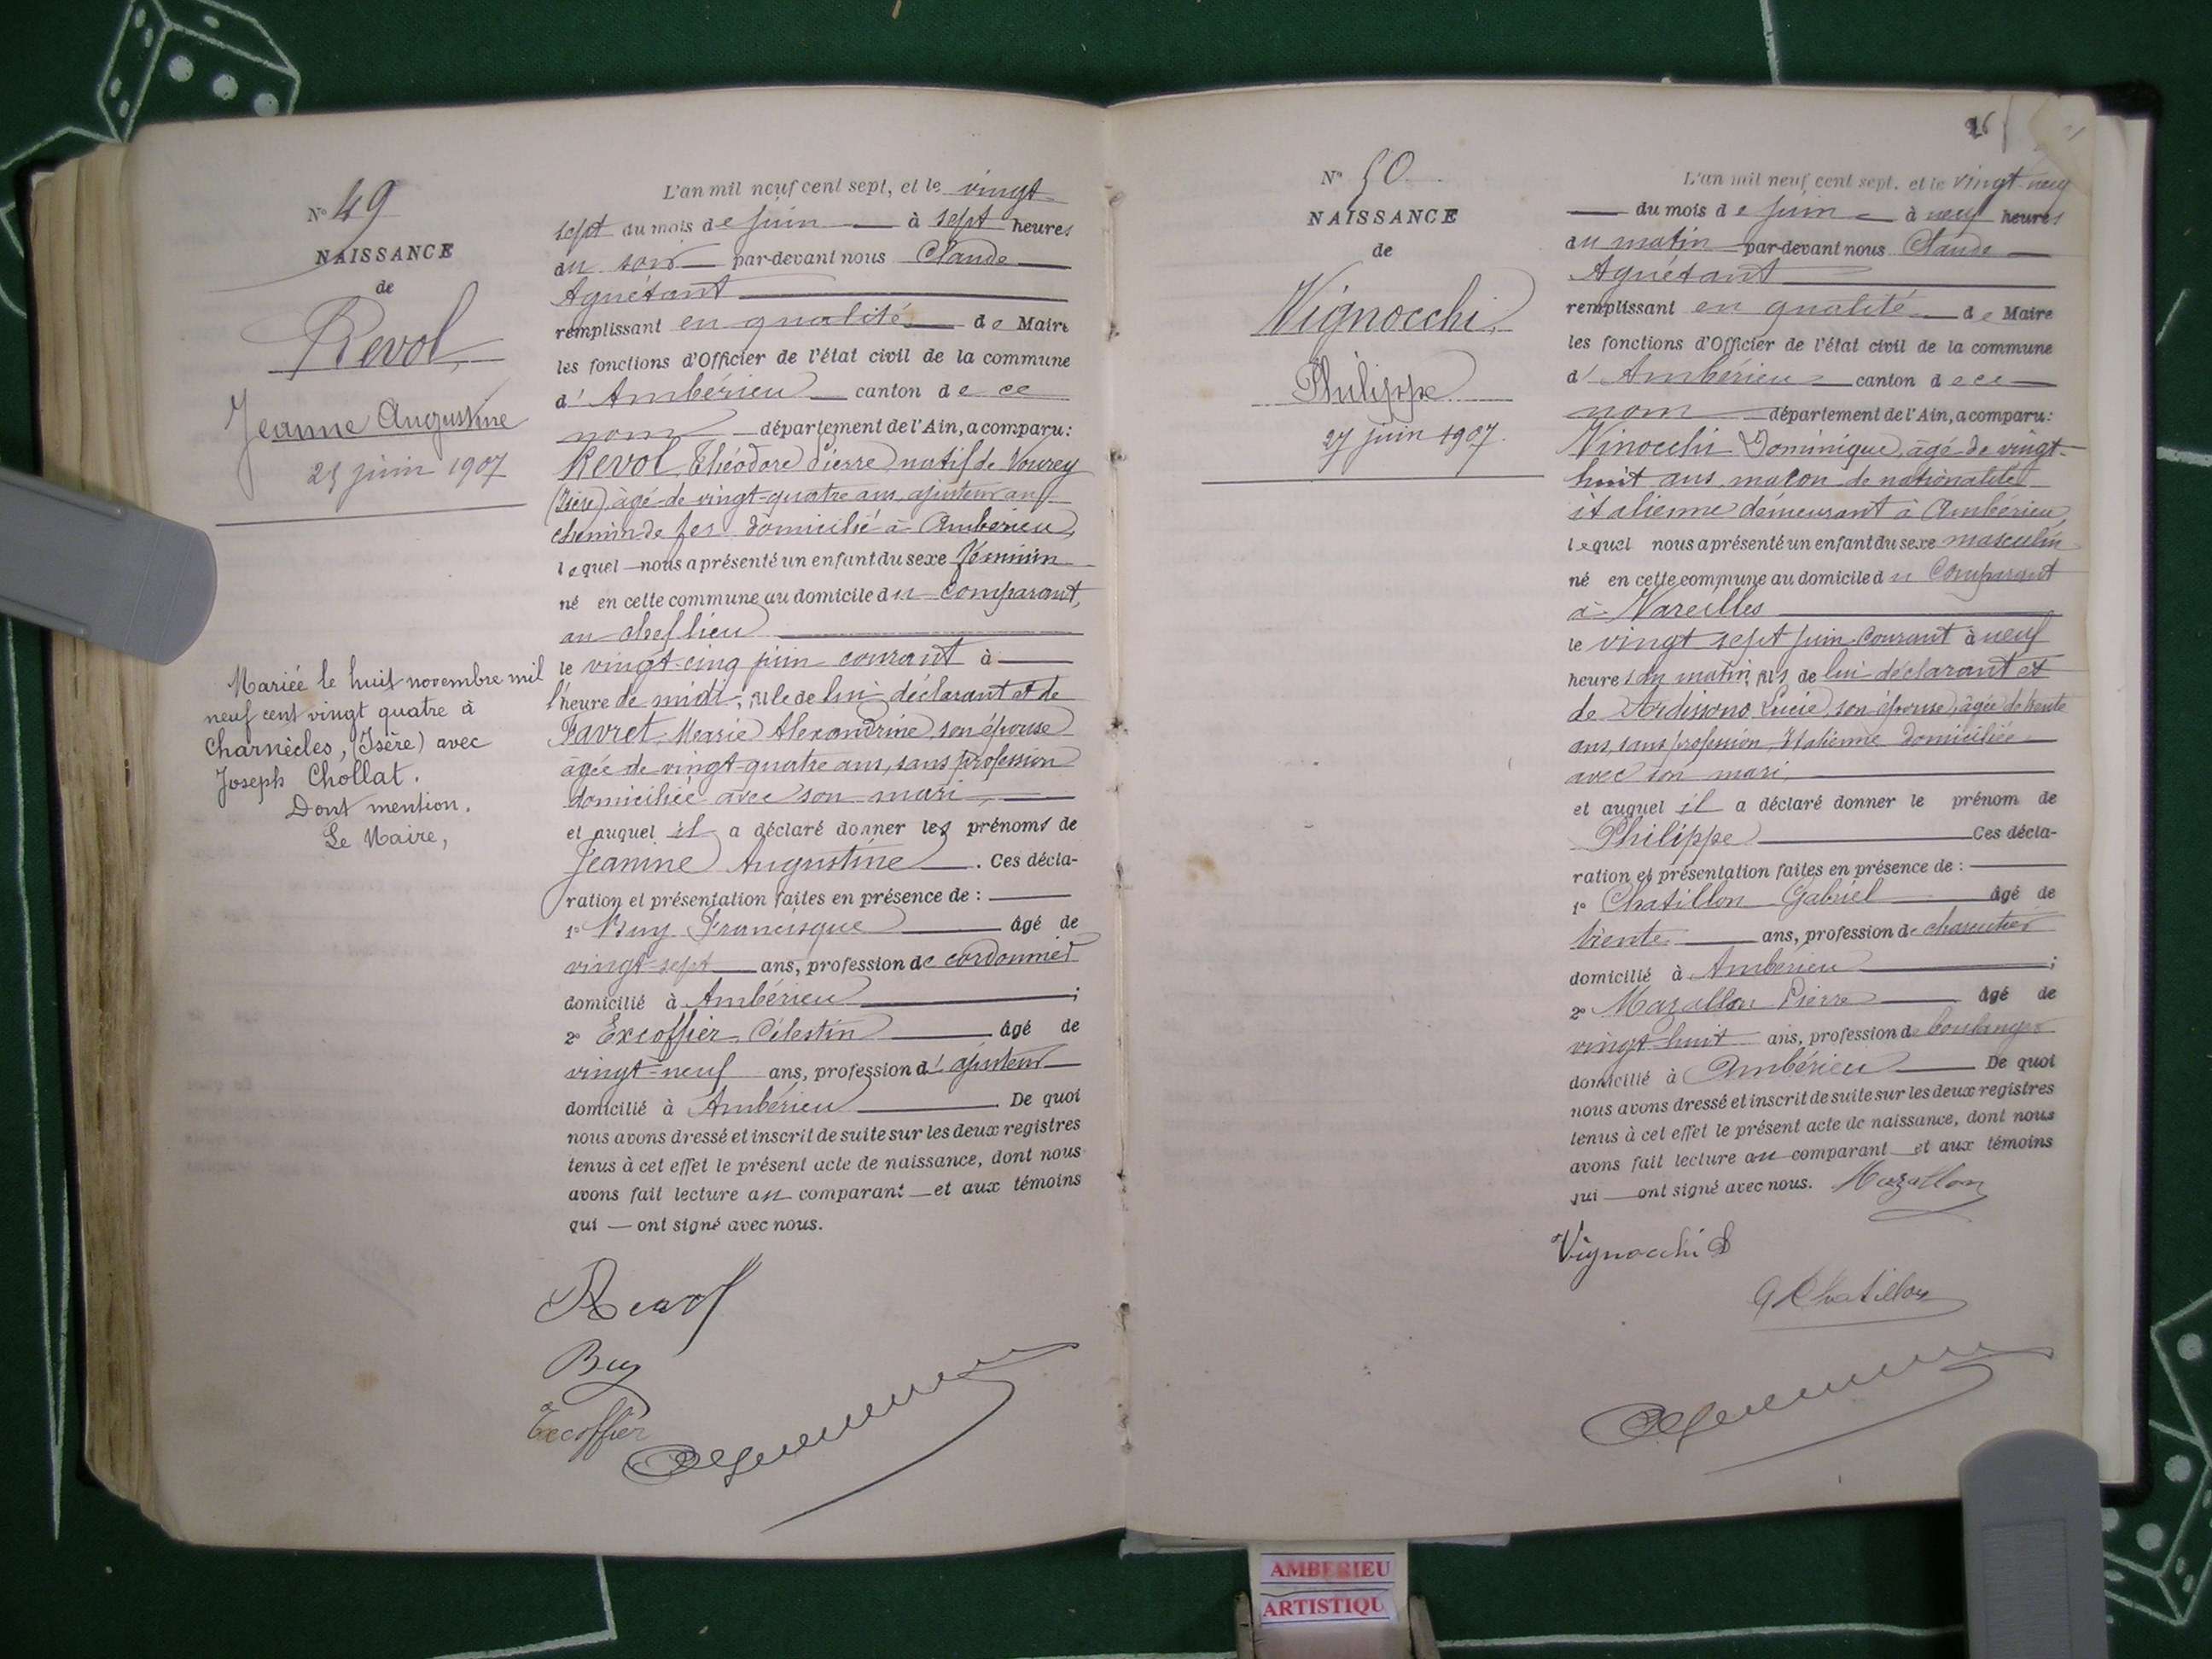 N° 49
NAISSANCE
de
Revol
Jeanne Augustine
25 juin 1907
Mariée le huit novembre mil
neuf cent vingt quatre à
Charnècles, (Isère) avec
Joseph Chollat.
Dont mention.
Le Maire,
L'an mil neuf cent sept, et le vingt
sept du mois de juin à sept heures
du soir par-devant nous Claude
Aguétant
remplissant en qualité de Maire
les fonctions d'Officier de l'état civil de la commune
d'Ambérieu canton de ce
nom département de l'Ain, a comparu:
Revol Théodore Pierre natif de Vourey
(Isère) âgé de vingt-quatre ans, ajusteur au
chemin de fer domicilié à Ambérieu,
lequel nous a présenté un enfant du sexe féminin
né en cette commune au domicile du comparant,
au chef lieu
le vingt-cinq juin courant à
l'heure de midi, fille de lui déclarant et de
Favret Marie Alexandrine son épouse
âgée de vingt-quatre ans, sans profession
domiciliée avec son mari,
et auquel il a déclaré donner les prénoms de
Jeanne Augustine. Ces décla-
ration et présentation faites en présence de :
1° Buy Francisque âgé de
vingt-sept ans, profession de cordonnier
domicilié à Ambérieu ;
2° Excoffier Célestin âgé de
vingt-neuf ans, profession d'ajusteur
domicilié à Ambérieu. De quoi
nous avons dressé et inscrit de suite sur les deux registres
tenus à cet effet le présent acte de naissance, dont nous
avons fait lecture au comparant et aux témoins
qui ont signé avec nous.
Revol
Buy
Excoffier
26
N° 50
NAISSANCE
de
Vignocchi
Philippe
27 juin 1907.
L'an mil neuf cent sept. et le vingt-neuf
du mois de juin à neuf heures
du matin par-devant nous Claude
Aguétant
remplissant en qualité de Maire
les fonctions d'Officier de l'état civil de la commune
d'Ambérieu canton de ce
nom département de l'Ain, a comparu:
Vinocchi Dominique, âgé de vingt-
huit ans, maçon de nationalité
italienne demeurant à Ambérieu,
lequel nous a présenté un enfant du sexe masculin
né en cette commune au domicile du comparant
à Vareilles
le vingt sept juin courant à neuf
heures du matin, fils de lui déclarant et
de Ardissono Lucie, son épouse, âgée de trente
ans, sans profession, Italienne domiciliée
avec son mari,
et auquel il a déclaré donner le prénom de
Philippe Ces décla-
ration et présentation faites en présence de :
1° Chatillon Gabriel âgé de
trente ans, profession de charcutier
domicilié à Ambérieu ;
2° Mazallon Pierre âgé de
vingt-huit ans, profession de boulanger
domicilié à Ambérieu De quoi
nous avons dressé et inscrit de suite sur les deux registres
tenus à cet effet le présent acte de naissance, dont nous
avons fait lecture au comparant et aux témoins
qui ont signé avec nous. Mazallon
Vignocchi D
G Chatillon
AMBERIEU
ARTISTIQU